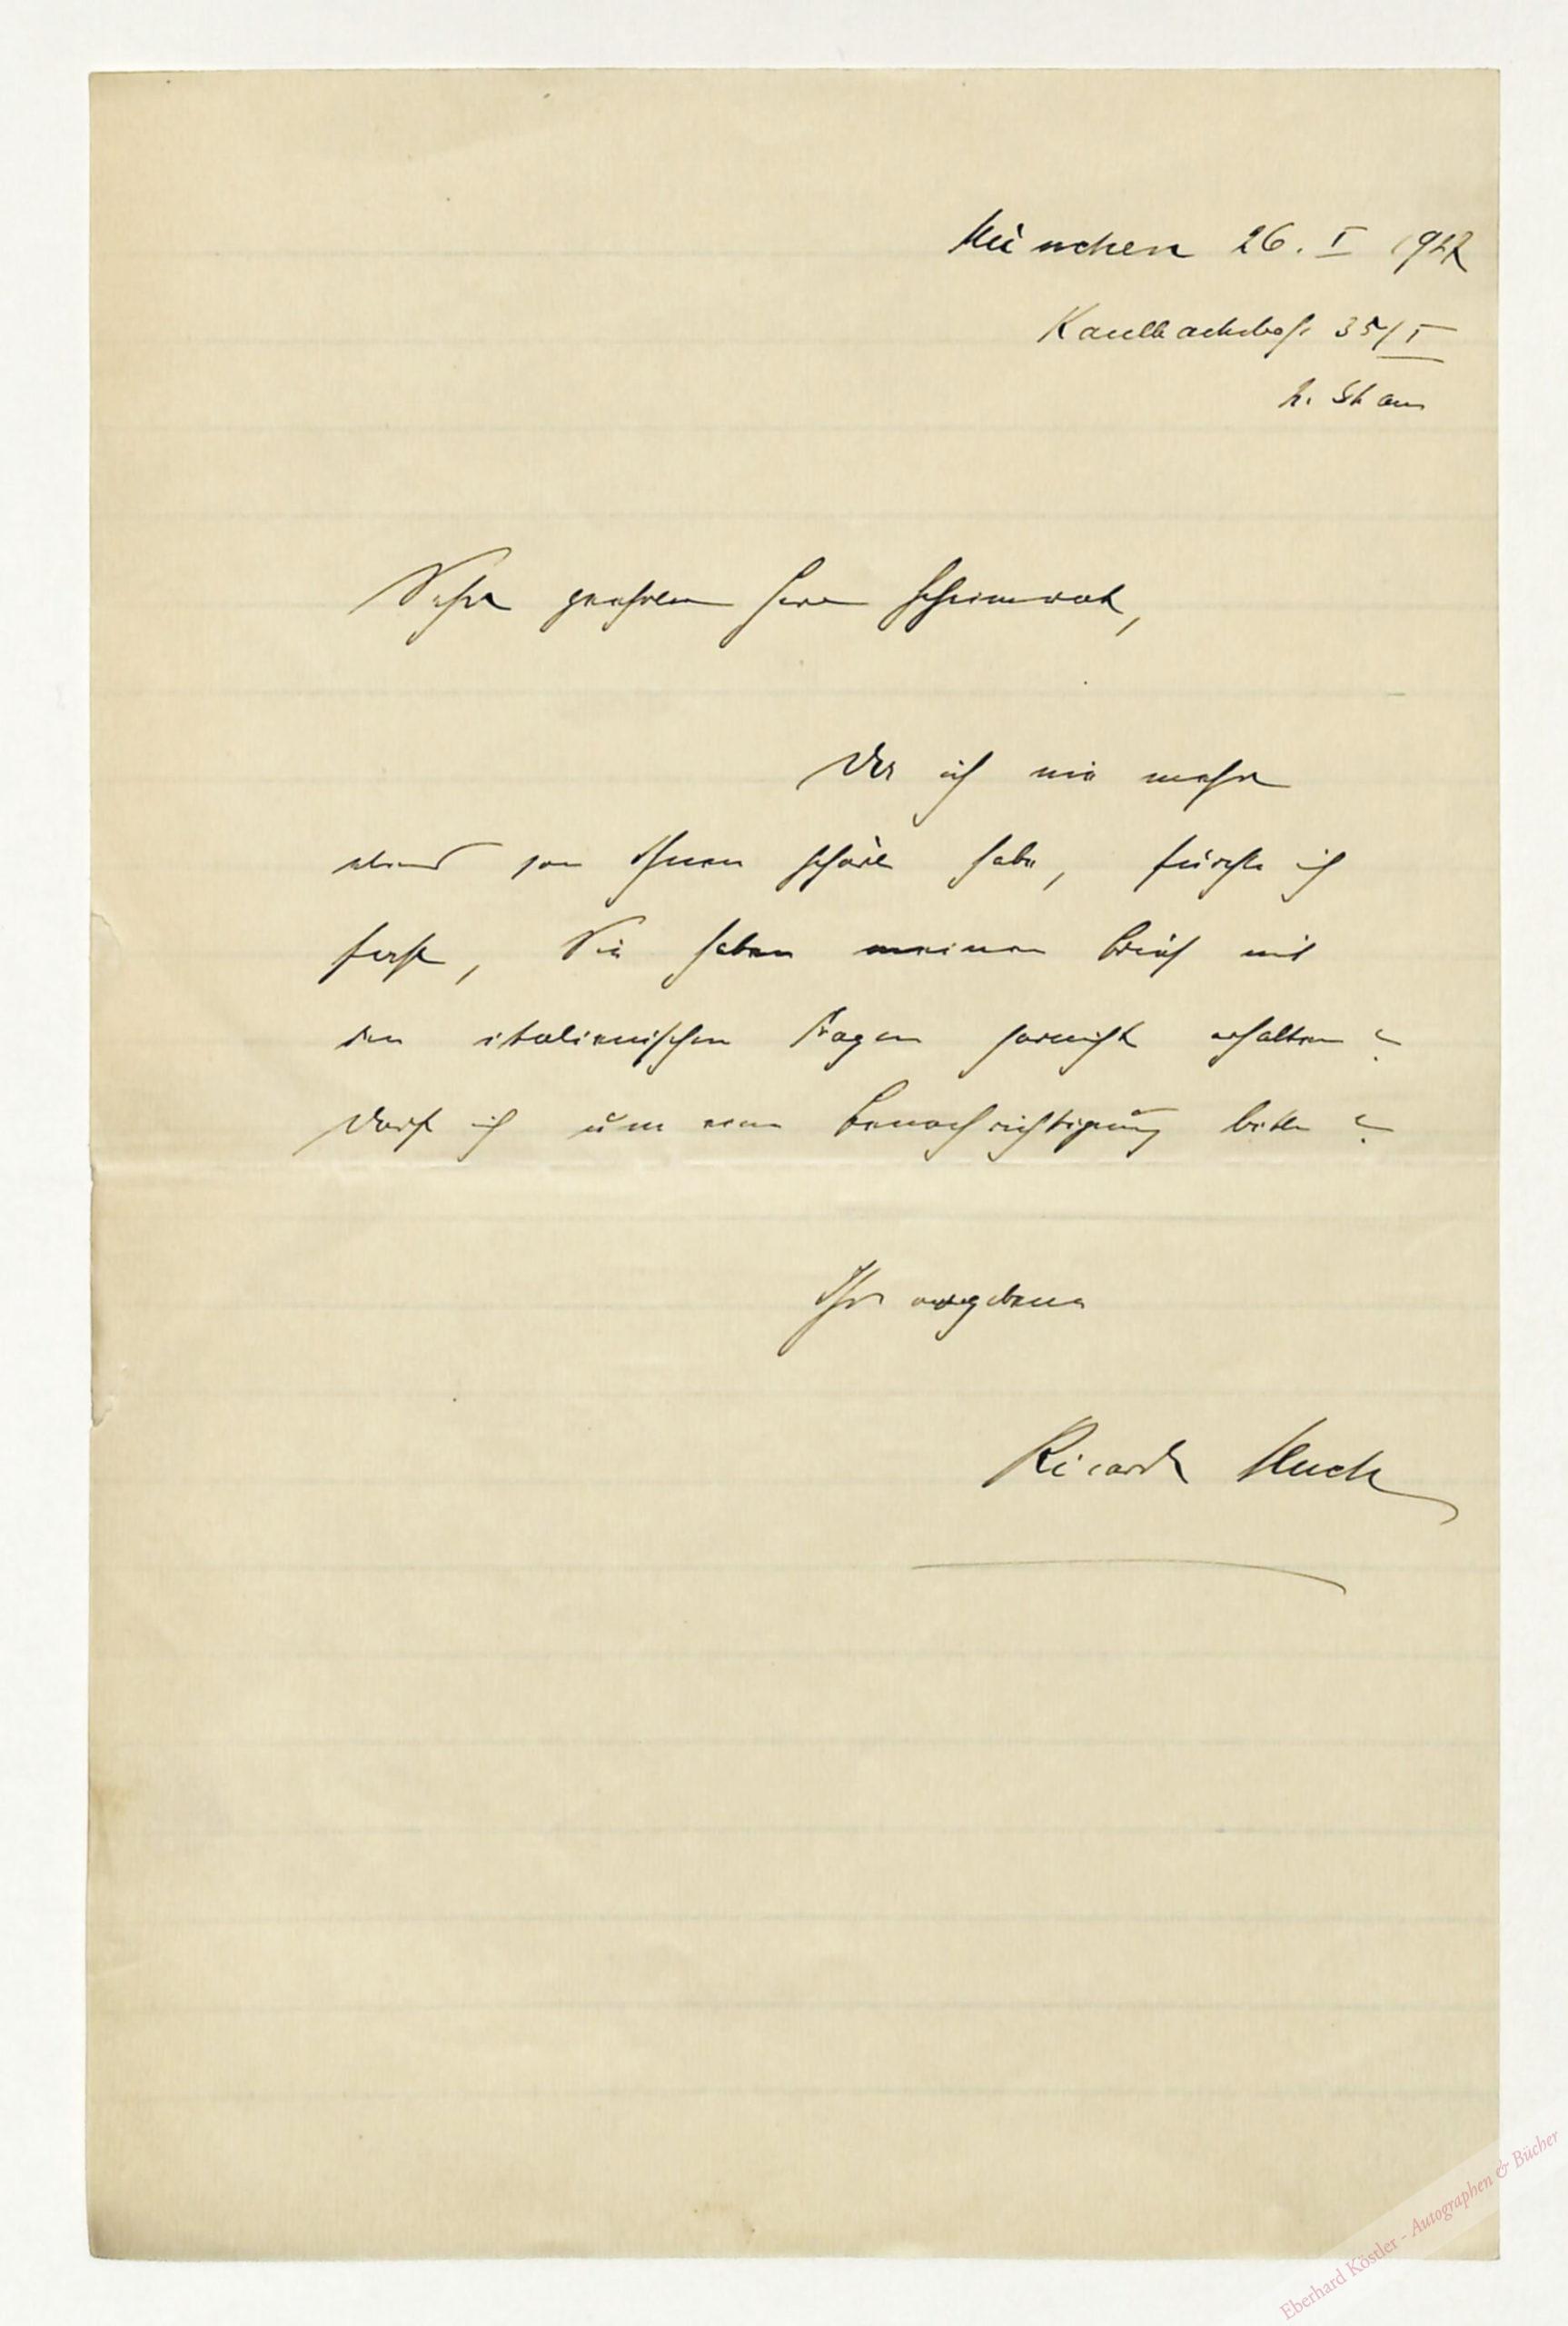 München 26. I
Kaulbachstraße 35/I
Sehr geehrter Herr Geheimrat,
Da ich nie mehr
etwas von Ihnen gehört habe, fürchte ich
fast, Sie haben meinen Brief mit
den italienischen Fragen garnicht erhalten?
Darf ich um eine Benachrichtigung bitten?
Ihre ergebene
Ricarda Huch
Eberhard Köstler - Autographen & Bücher